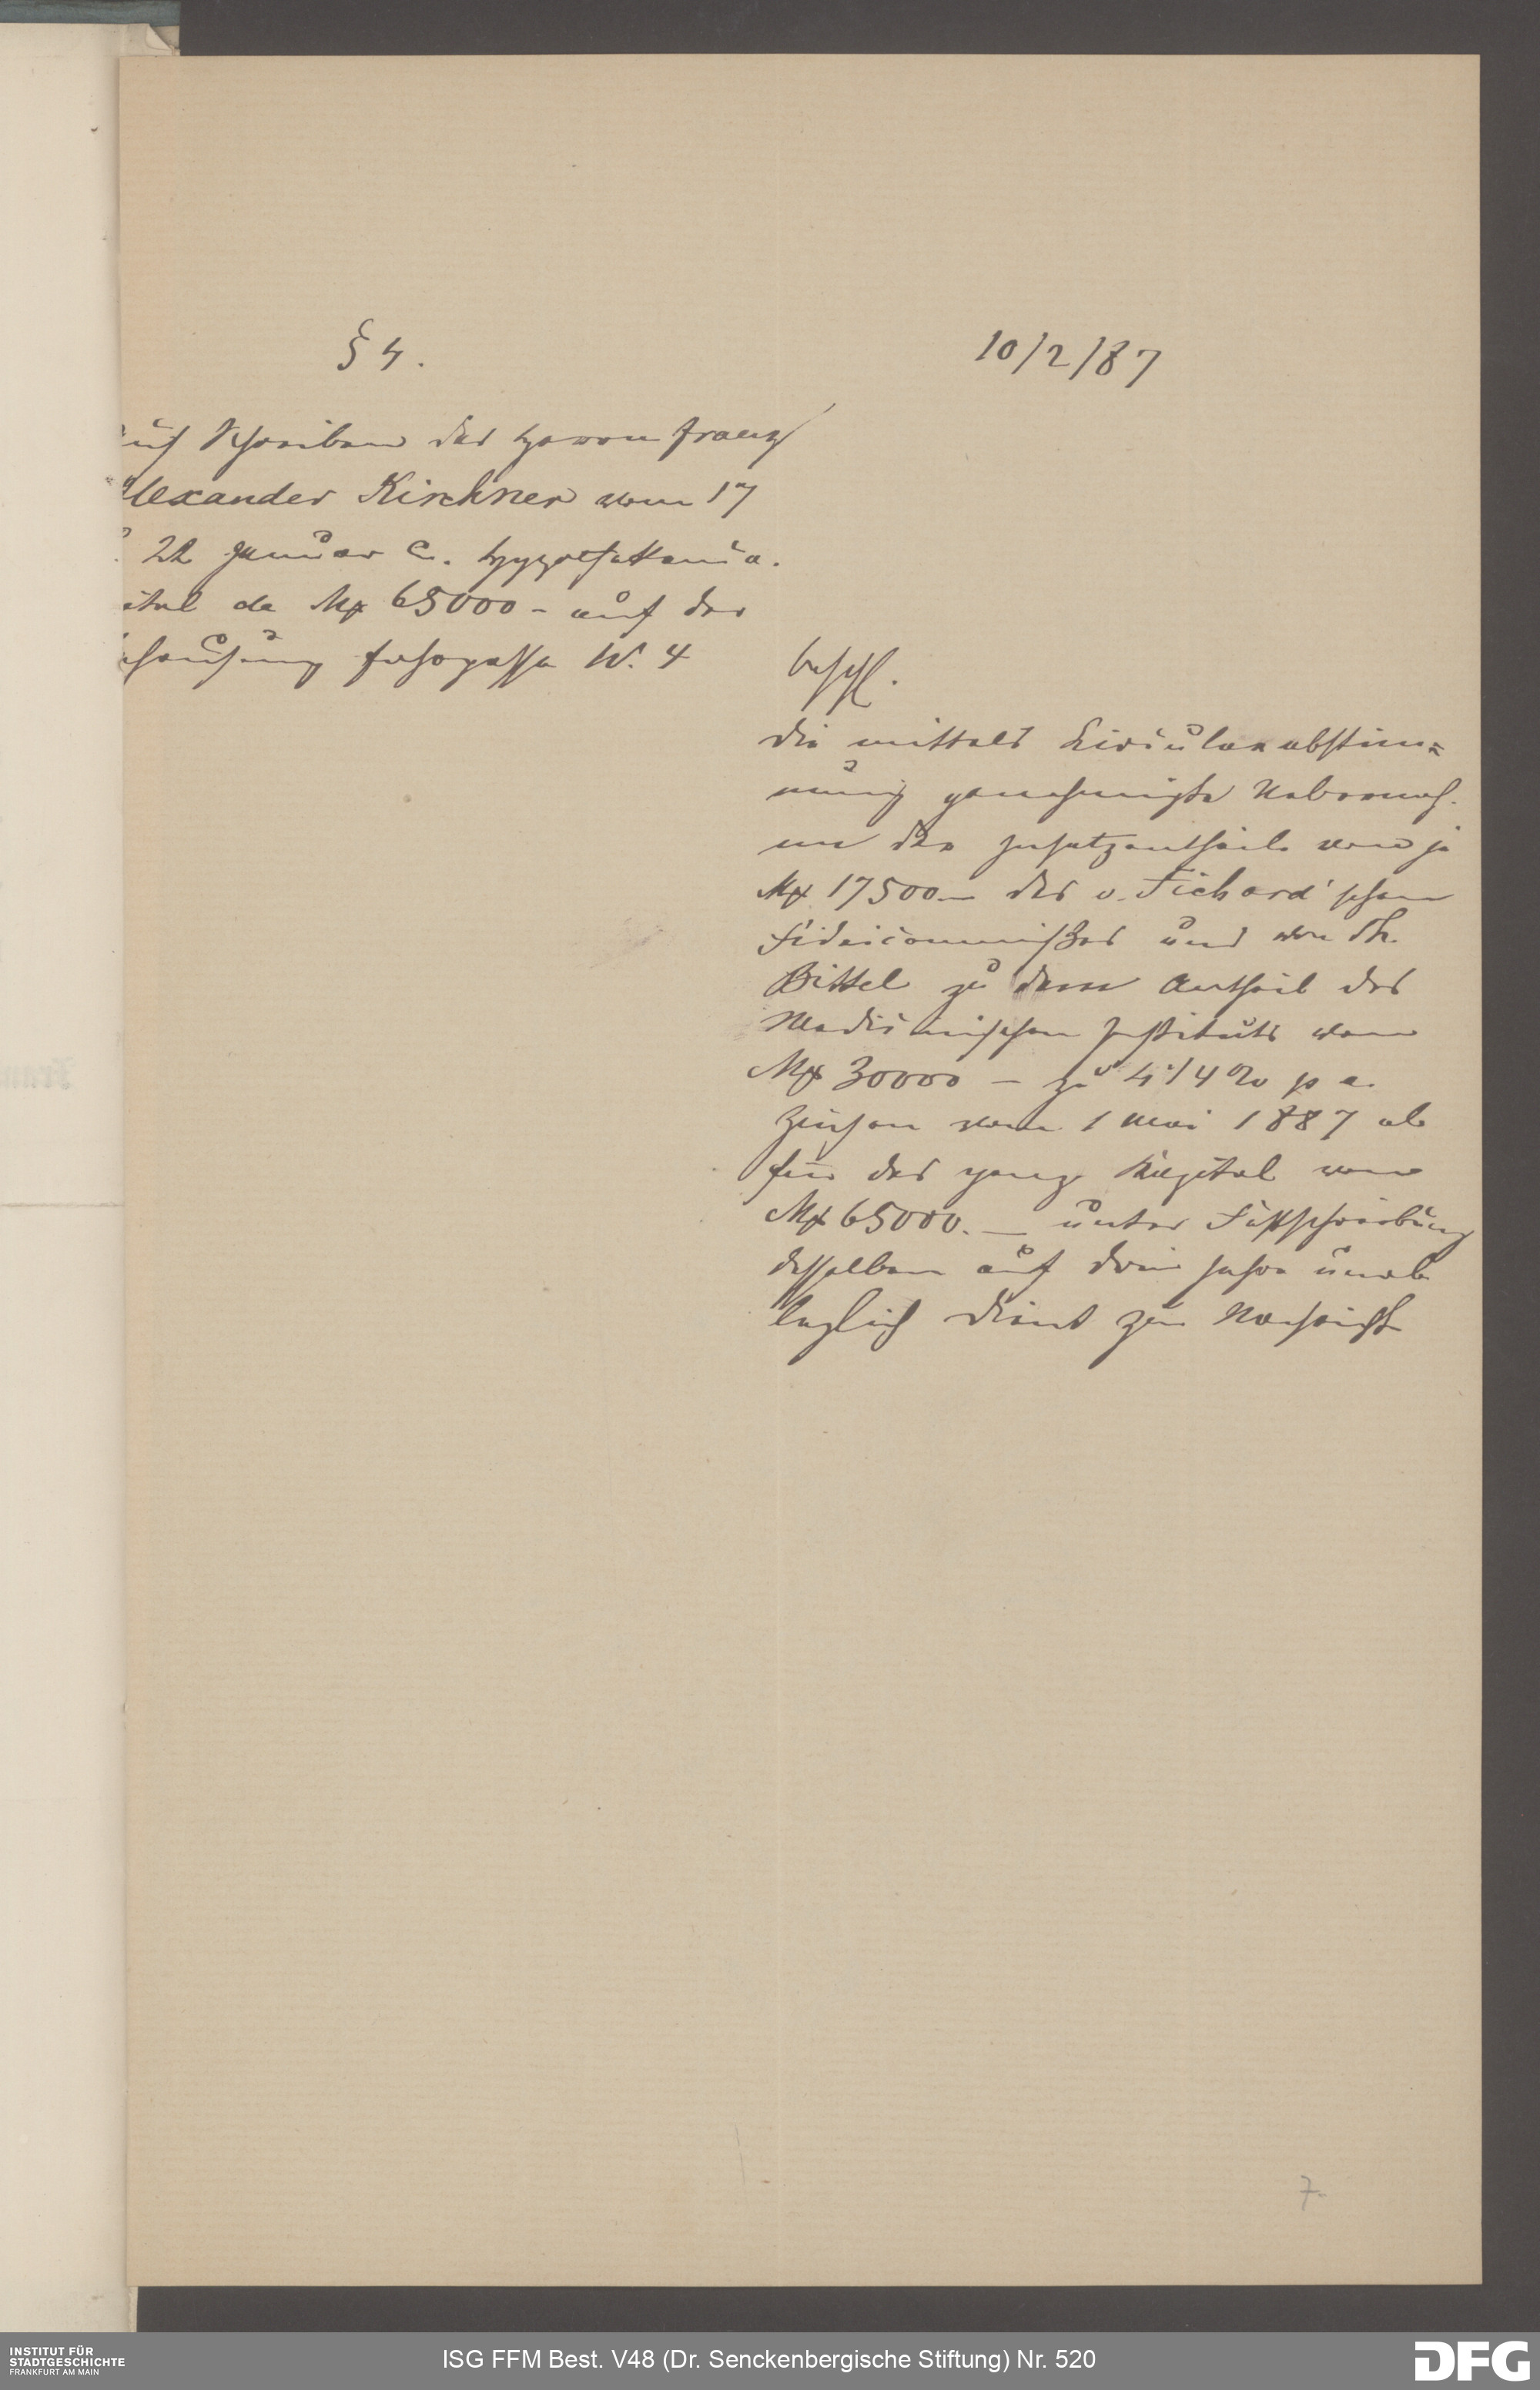 § 4.
10/2/87
auf Schreiben des Herrn Franz
Alexander Kirchner vom 17
22 Januar c. Hypothekenca-
pital de Mk 65000 - auf der
Behausung Fahrgasse N. 4
beschl.
die mittels Circularabstim=
mung genehmigte Uebernah-
me der Insatzantheile von je
Mk 17500.— des v. Fichard'schen
Fideicommißes und von Th.
Bittel zu dem Antheil des
Medicinischen Instituts von
Mk 30000 — zu 4 1/4 % p a.
Zinsen vom 1 Mai 1887 ab
für das ganze Kapital von
Mk 65000. — unter Festschreibung
desselben auf drei Jahre unab
leglich dient zur Nachricht
7.
INSTITUT FÜR
STADTGESCHICHTE
FRANKFURT AM MAIN
ISG FFM Best. V48 (Dr. Senckenbergische Stiftung) Nr. 520
DFG